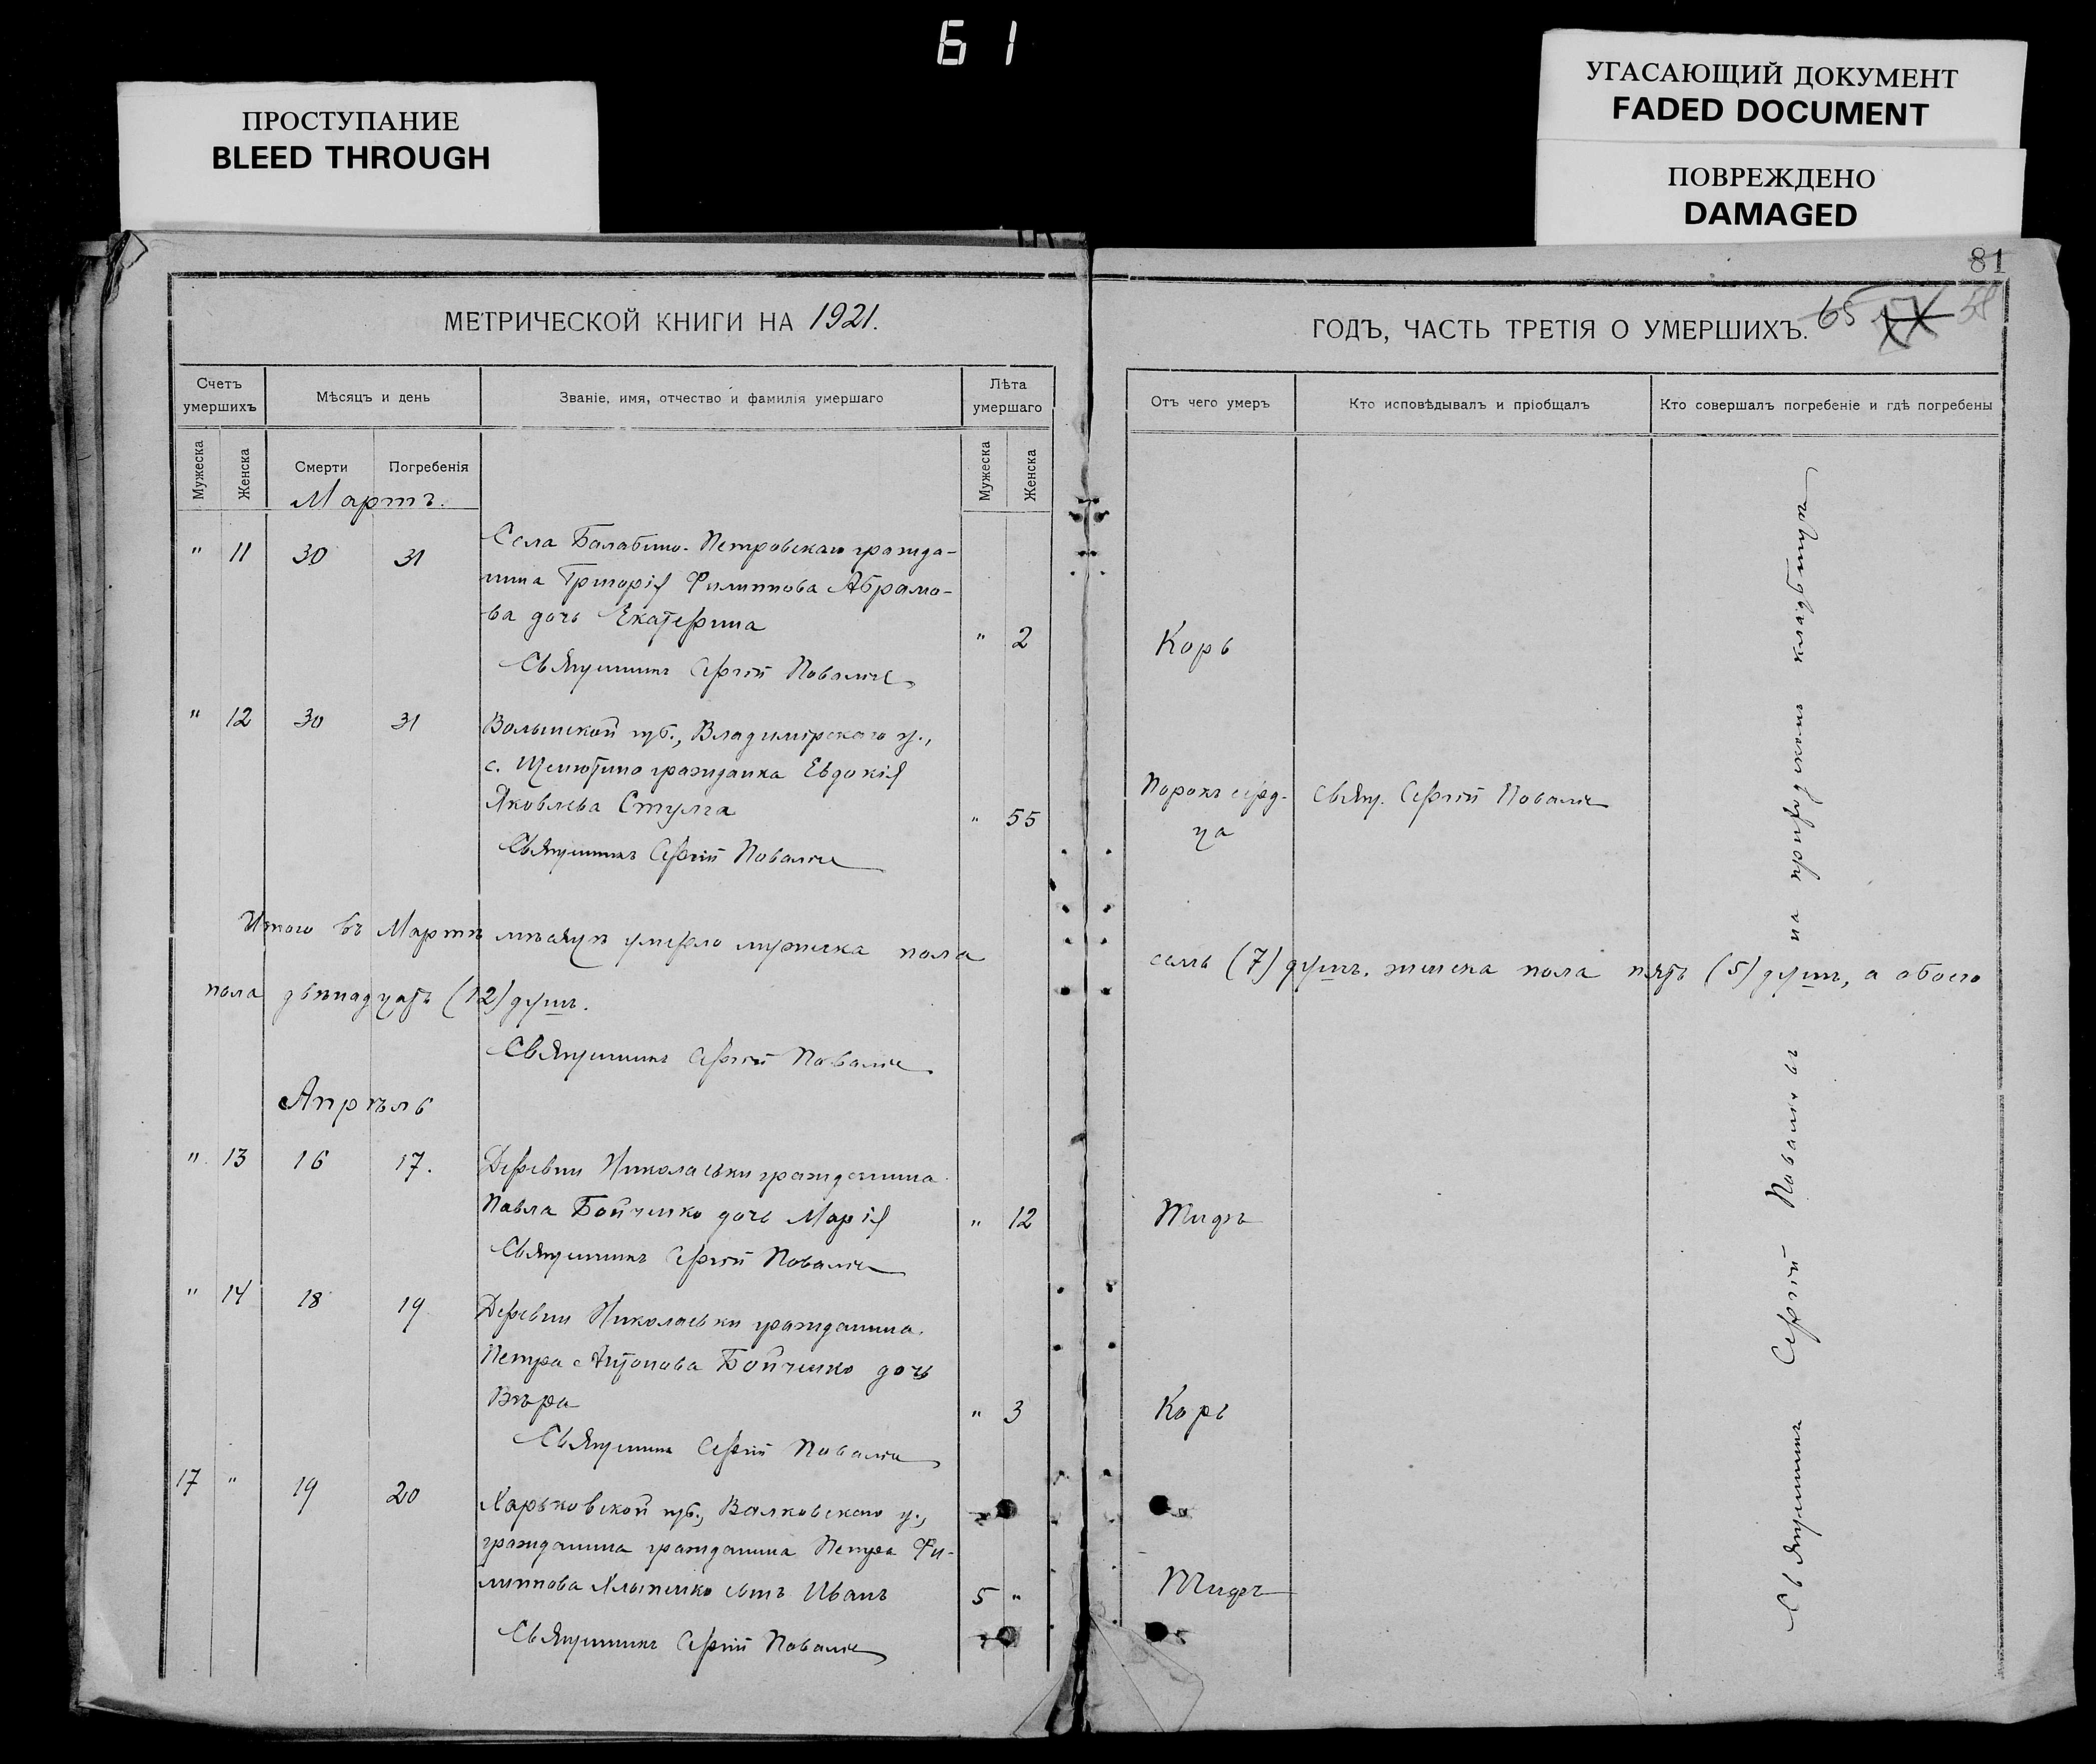 Б 1
ПРОСТУПАНИЕ
BLEED THROUGH
УГАСАЮЩИЙ ДОКУМЕНТ
FADED DOCUMENT
ПОВРЕЖДЕНО
DAMAGED
81
МЕТРИЧЕСКОЙ КНИГИ НА 1921.
ГОДЪ, ЧАСТЬ ТРЕТІЯ О УМЕРШИХЪ. 65 58
Счетъ умершихъ
Мѣсяцъ и день
Званіе, имя, отчество и фамилія умершаго
Лѣта умершаго
Отъ чего умеръ
Кто исповѣдывалъ и пріобщалъ
Кто совершалъ погребеніе и гдѣ погребены
Мужеска
Женска
Смерти
Погребенія
Мужеска
Женска
Мартъ.
" 11 30 31 Села Балабино-Петровскаго гражда-
нина Григорія Филиппова Абрамо-
ва дочь Екатерина " 2 Корь
Священникъ Сергій
" 12 30 31 Волынской губ., Владимірскаго у.,
с. гражданка Евдокія
Яковлева " 55 Порокъ серд-
ца Свящ. Сергій
Священникъ Сергій
Итого въ Мартѣ мѣсяцѣ умерло мужеска пола семь (7) душъ. женска пола пять (5) душъ, а обоего
пола двѣнадцать (12) душъ.
Священникъ Сергій
Апрѣль
" 13 16 17. Деревни Николаевки гражданина
Павла Бойченко дочь Марія " 12 Тифъ
Священникъ Сергій
" 14 18 19 Деревни Николаевки гражданина
Петра Антонова Бойченко дочь
Вѣра " 3 Корь
Священникъ Сергій
17 " 19 20 Харьковской губ., Валковскаго у.,
гражданина гражданина Петра Фи-
липпова сынъ Иванъ 5 " Тифъ
Священникъ Сергій
Священникъ Сергій на приходскомъ кладбищѣ